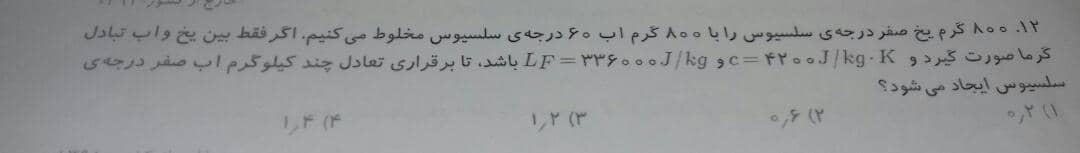 ۱۲. ۸۰۰ گرم یخ صفر درجه‌ی سلسیوس را با ۸۰۰ گرم اب ۶۰ درجه‌ی سلسیوس مخلوط می‌کنیم. اگر فقط بین یخ و اب تبادل
گرما صورت گیرد و c = ۴۲۰۰J/kg·K و LF = ۳۳۶۰۰۰J/kg باشد، تا برقراری تعادل چند کیلوگرم اب صفر درجه‌ی
سلسیوس ایجاد می‌شود؟
۱) ۰٫۲ ۲) ۰٫۶ ۳) ۱٫۲ ۴) ۱٫۴